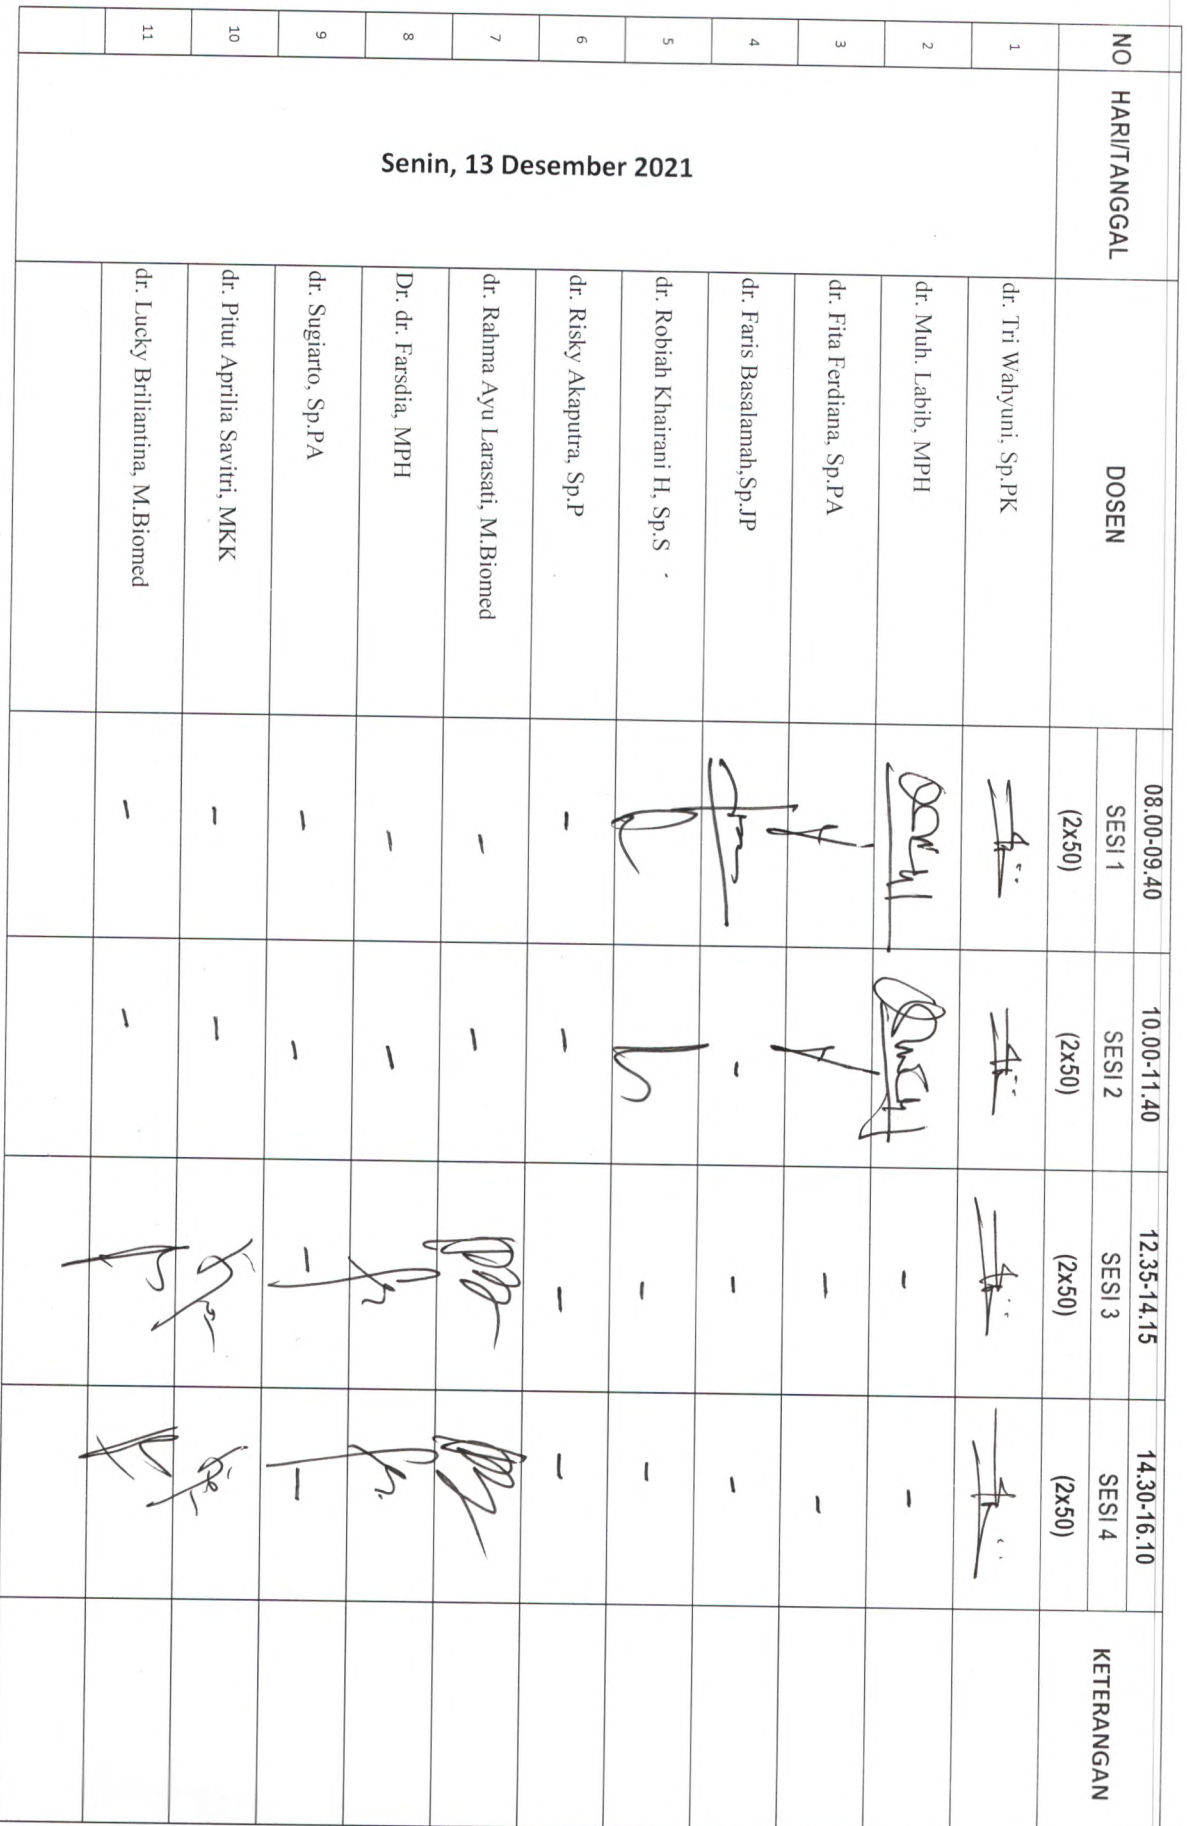 NO HARI/TANGGAL DOSEN 08.00-09.40 10.00-11.40 12.35-14.15 14.30-16.10 KETERANGAN
SESI 1 SESI 2 SESI 3 SESI 4
(2x50) (2x50) (2x50) (2x50)
Senin, 13 Desember 2021
1 dr. Tri Wahyuni, Sp.PK
2 dr. Muh. Labib, MPH - -
3 dr. Fita Ferdiana, Sp.PA - -
4 dr. Faris Basalamah,Sp.JP - - -
5 dr. Robiah Khairani H, Sp.S - -
6 dr. Risky Akaputra, Sp.P - - - -
7 dr. Rahma Ayu Larasati, M.Biomed - -
8 Dr. dr. Farsdia, MPH - -
9 dr. Sugiarto, Sp.PA - - - -
10 dr. Pitut Aprilia Savitri, MKK - -
11 dr. Lucky Briliantina, M.Biomed - -